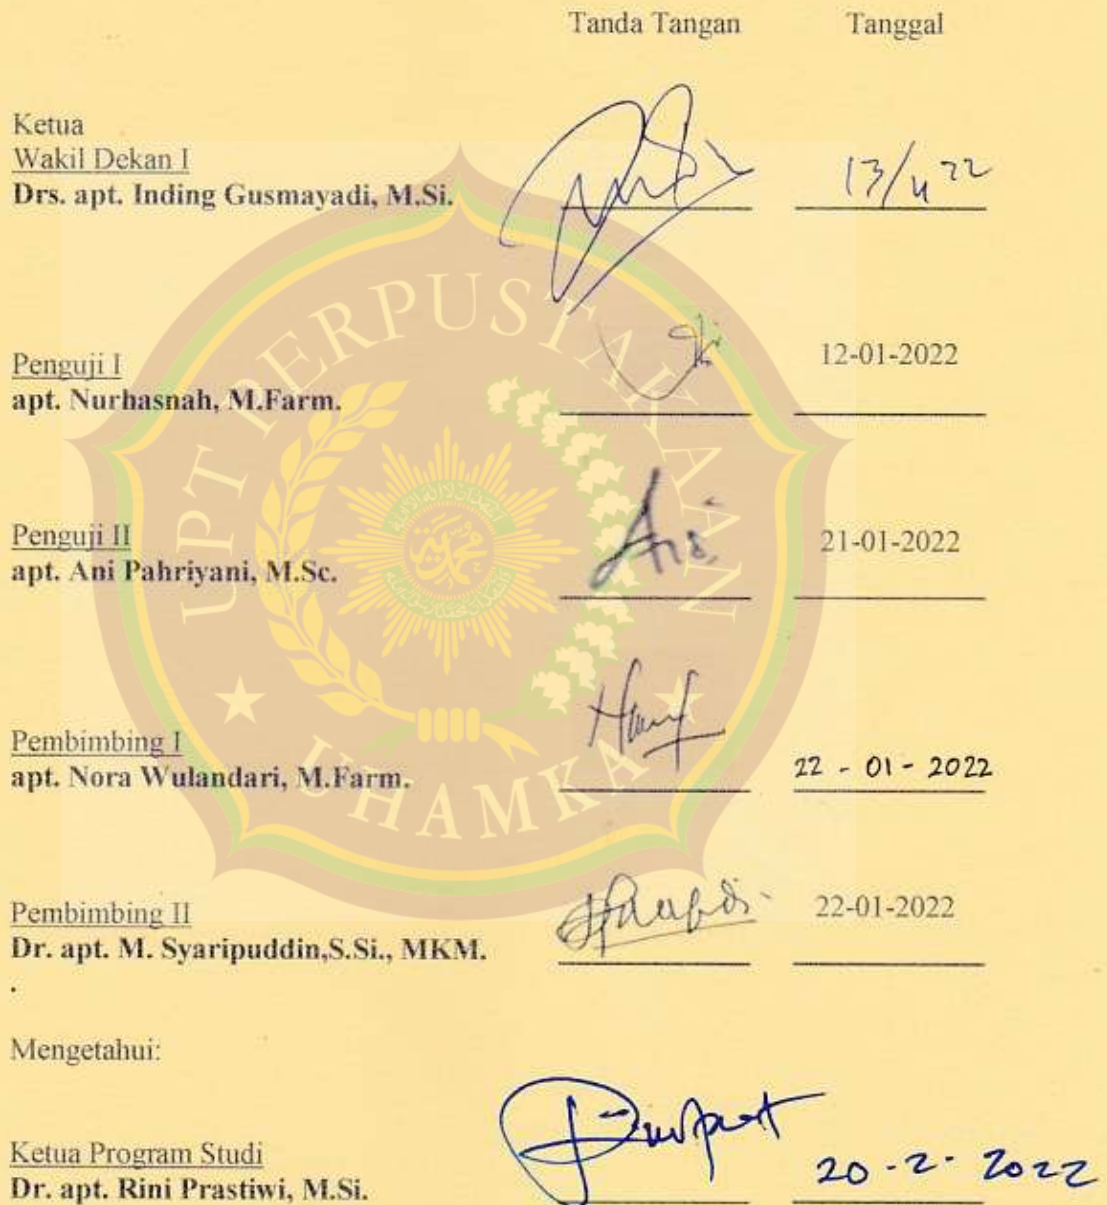 Tanda Tangan Tanggal
Ketua
Wakil Dekan I
Drs. apt. Inding Gusmayadi, M.Si. 13/4 22
Penguji I 12-01-2022
apt. Nurhasnah, M.Farm.
Penguji II 21-01-2022
apt. Ani Pahriyani, M.Sc.
Pembimbing I
apt. Nora Wulandari, M.Farm. 22 - 01 - 2022
Pembimbing II 22-01-2022
Dr. apt. M. Syaripuddin,S.Si., MKM.
.
Mengetahui:
Ketua Program Studi
Dr. apt. Rini Prastiwi, M.Si. 20 - 2 - 2022
UPT PERPUSTAKAAN
UHAMKA